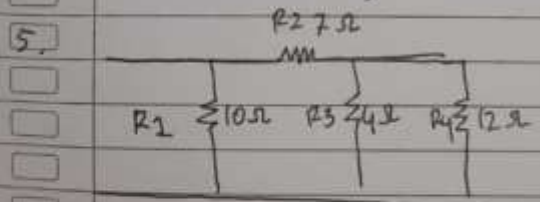 R2 7 Ω
5.
R1 10Ω R3 4Ω R4 12Ω